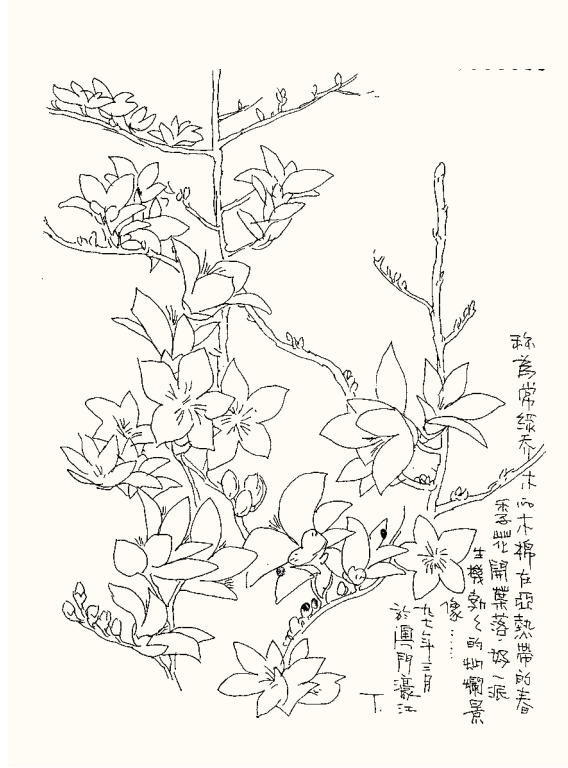 称為常綠乔木而木棉在亞熱帶的春
季花開葉落,好一派
生機勃々的灿爛景
像……
九七年三月
於澳門濠江